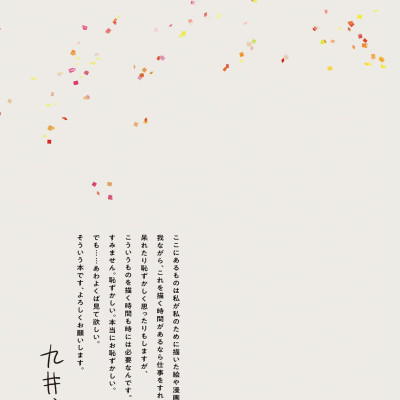 ここにあるものは私が私のために描いた絵や漫画
我ながら、これを描く時間があるなら仕事をすれ
呆れたり恥ずかしく思ったりもしますが、
こういうものを描く時間も時には必要なんです。
すみません。恥ずかしい。本当にお恥ずかしい。
でも……あわよくば見て欲しい。
そういう本です、よろしくお願いします。
九井